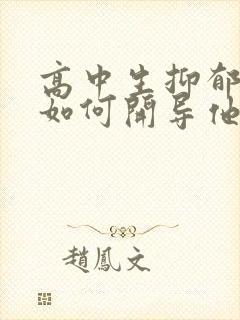 高中生抑郁
如何開导他
趙鳳文